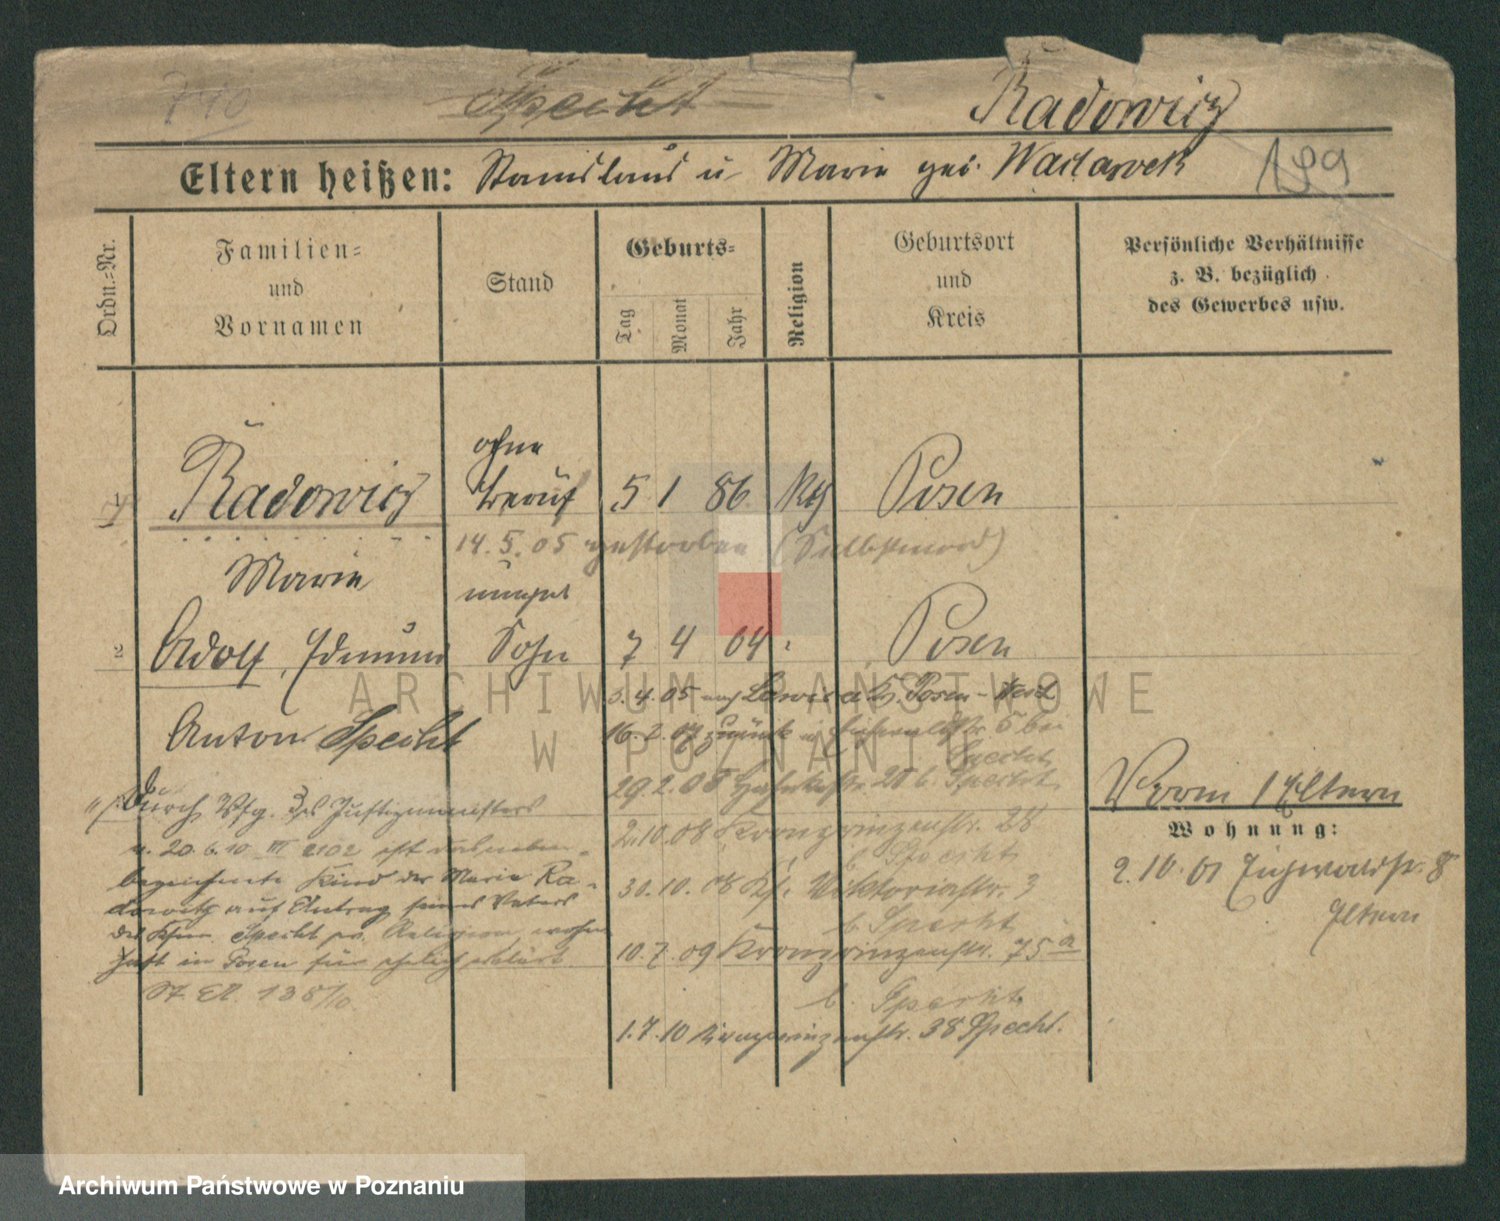 Specht Radowicz
Eltern heißen: Stanislaus u Marie geb. Waclawek 199
Ordn.=Nr.
Familien=
und
Vornamen
Stand
Geburts=
Tag
Monat
Jahr
Religion
Geburtsort
und
Kreis
Persönliche Verhältnisse
z. B. bezüglich
des Gewerbes usw.
1 Radowicz ohne Beruf 5 1 86 Kth Posen
14. 5. 05 gestorben (Selbstmord)
Marie
unehel
2 Adolf, Edmund Sohn 7 4 04 Posen
Anton Specht
5. 4. 05 nach Posen-West
16. 2. 07 zurück 5 bei
Specht
29. 2. 08 20 b. Specht
2. 10. 08 Kronprinzenstr. 28
b Specht
30. 10. 08 Viktoriastr. 3
b Specht
10. 7. 09 Kronprinzenstr. 75a
b. Specht
1. 7. 10 Kronprinzenstr. 38 Specht.
Durch Vfg. des Justizministers
v. 20. 6. 10 III 2102 ist nebenbe-
bezeichnete Kind der Marie Ra-
dowicz auf Antrag seines Vaters
des Specht Religion, wohn
haft in Posen für ehelich erklärt.
Vorm / Eltern
Wohnung:
2. 10. 01 Eichwaldstr. 8
Eltern
ARCHIWUM PAŃSTWOWE
W POZNANIU
Archiwum Państwowe w Poznaniu